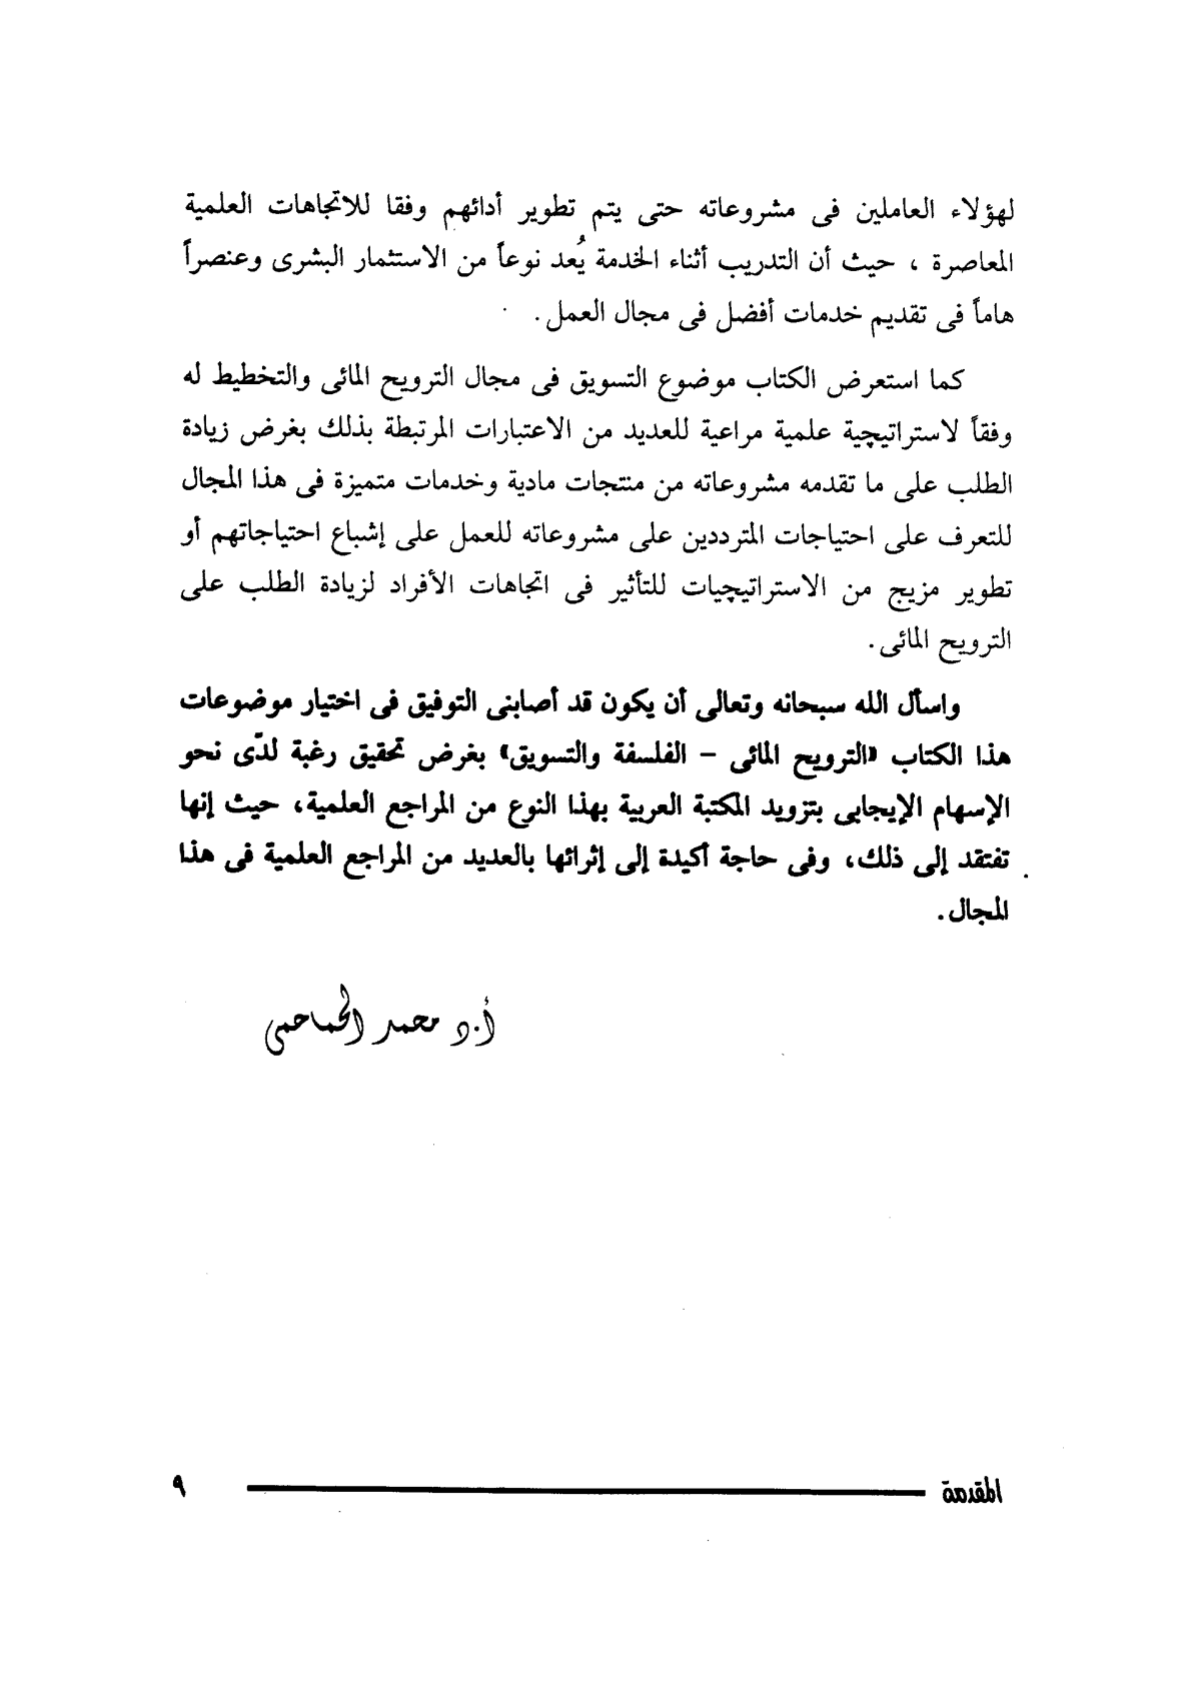 لهؤلاء العاملين فى مشروعاته حتى يتم تطوير أدائهم وفقا للاتجاهات العلمية
المعاصرة ، حيث أن التدريب أثناء الخدمة يُعد نوعاً من الاستثمار البشرى وعنصراً
هاماً فى تقديم خدمات أفضل فى مجال العمل.
كما استعرض الكتاب موضوع التسويق فى مجال الترويح المائى والتخطيط له
وفقاً لاستراتيچية علمية مراعية للعديد من الاعتبارات المرتبطة بذلك بغرض زيادة
الطلب على ما تقدمه مشروعاته من منتجات مادية وخدمات متميزة فى هذا المجال
للتعرف على احتياجات المترددين على مشروعاته للعمل على إشباع احتياجاتهم أو
تطوير مزيج من الاستراتيچيات للتأثير فى اتجاهات الأفراد لزيادة الطلب على
الترويح المائى.
واسأل الله سبحانه وتعالى أن يكون قد أصابنى التوفيق فى اختيار موضوعات
هذا الكتاب «الترويح المائى – الفلسفة والتسويق» بغرض تحقيق رغبة لدّى نحو
الإسهام الإيجابى بتزويد المكتبة العربية بهذا النوع من المراجع العلمية، حيث إنها
تفتقد إلى ذلك، وفى حاجة أكيدة إلى إثرائها بالعديد من المراجع العلمية فى هذا
المجال.
أ.د محمد الحماحمى
المقدمة ٩